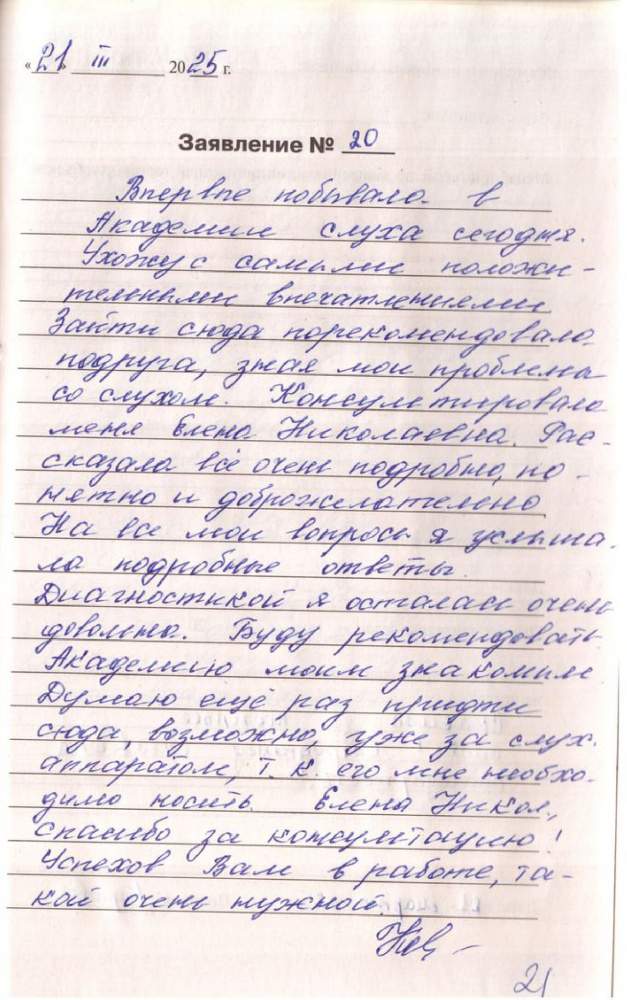 « 21 » III 2025 г.
Заявление № 20
Впервые побывала в
Академии слуха сегодня.
Ухожу с самыми положи-
тельными впечатлениями
Зайти сюда порекомендовала
подруга, зная мои проблемы
со слухом. Консультировала
меня Елена Николаевна. Рас-
сказала всё очень подробно, по-
нятно и доброжелательно
На все мои вопросы я услыша-
ла подробные ответы.
Диагностикой я осталась очень
довольна. Буду рекомендовать
Академию моим знакомым
Думаю ещё раз придти
сюда, возможно уже за слух.
аппаратом, т. к. его мне необхо-
димо носить. Елена Никол.,
спасибо за консультацию!
Успехов Вам в работе, та-
кой очень нужной.
21